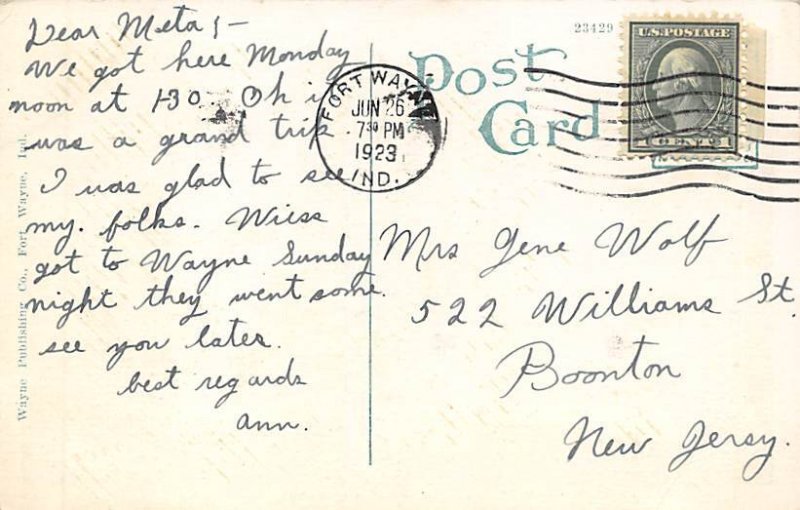 Dear Meta;-
We got here Monday
noon at 1-30 Oh it
was a grand trip
I was glad to see
my. folks. Wiess
got to Wayne Sunday
night they went some.
see you later.
best regards
ann.
Wayne Publishing Co., Fort Wayne, Ind.
FORT WAYNE
JUN 26
7 30 PM
1923
IND.
Post
Card
23429
U.S. POSTAGE
1 CENTS 1
Mrs Gene Wolf
522 Williams St.
Boonton
New Jersy.